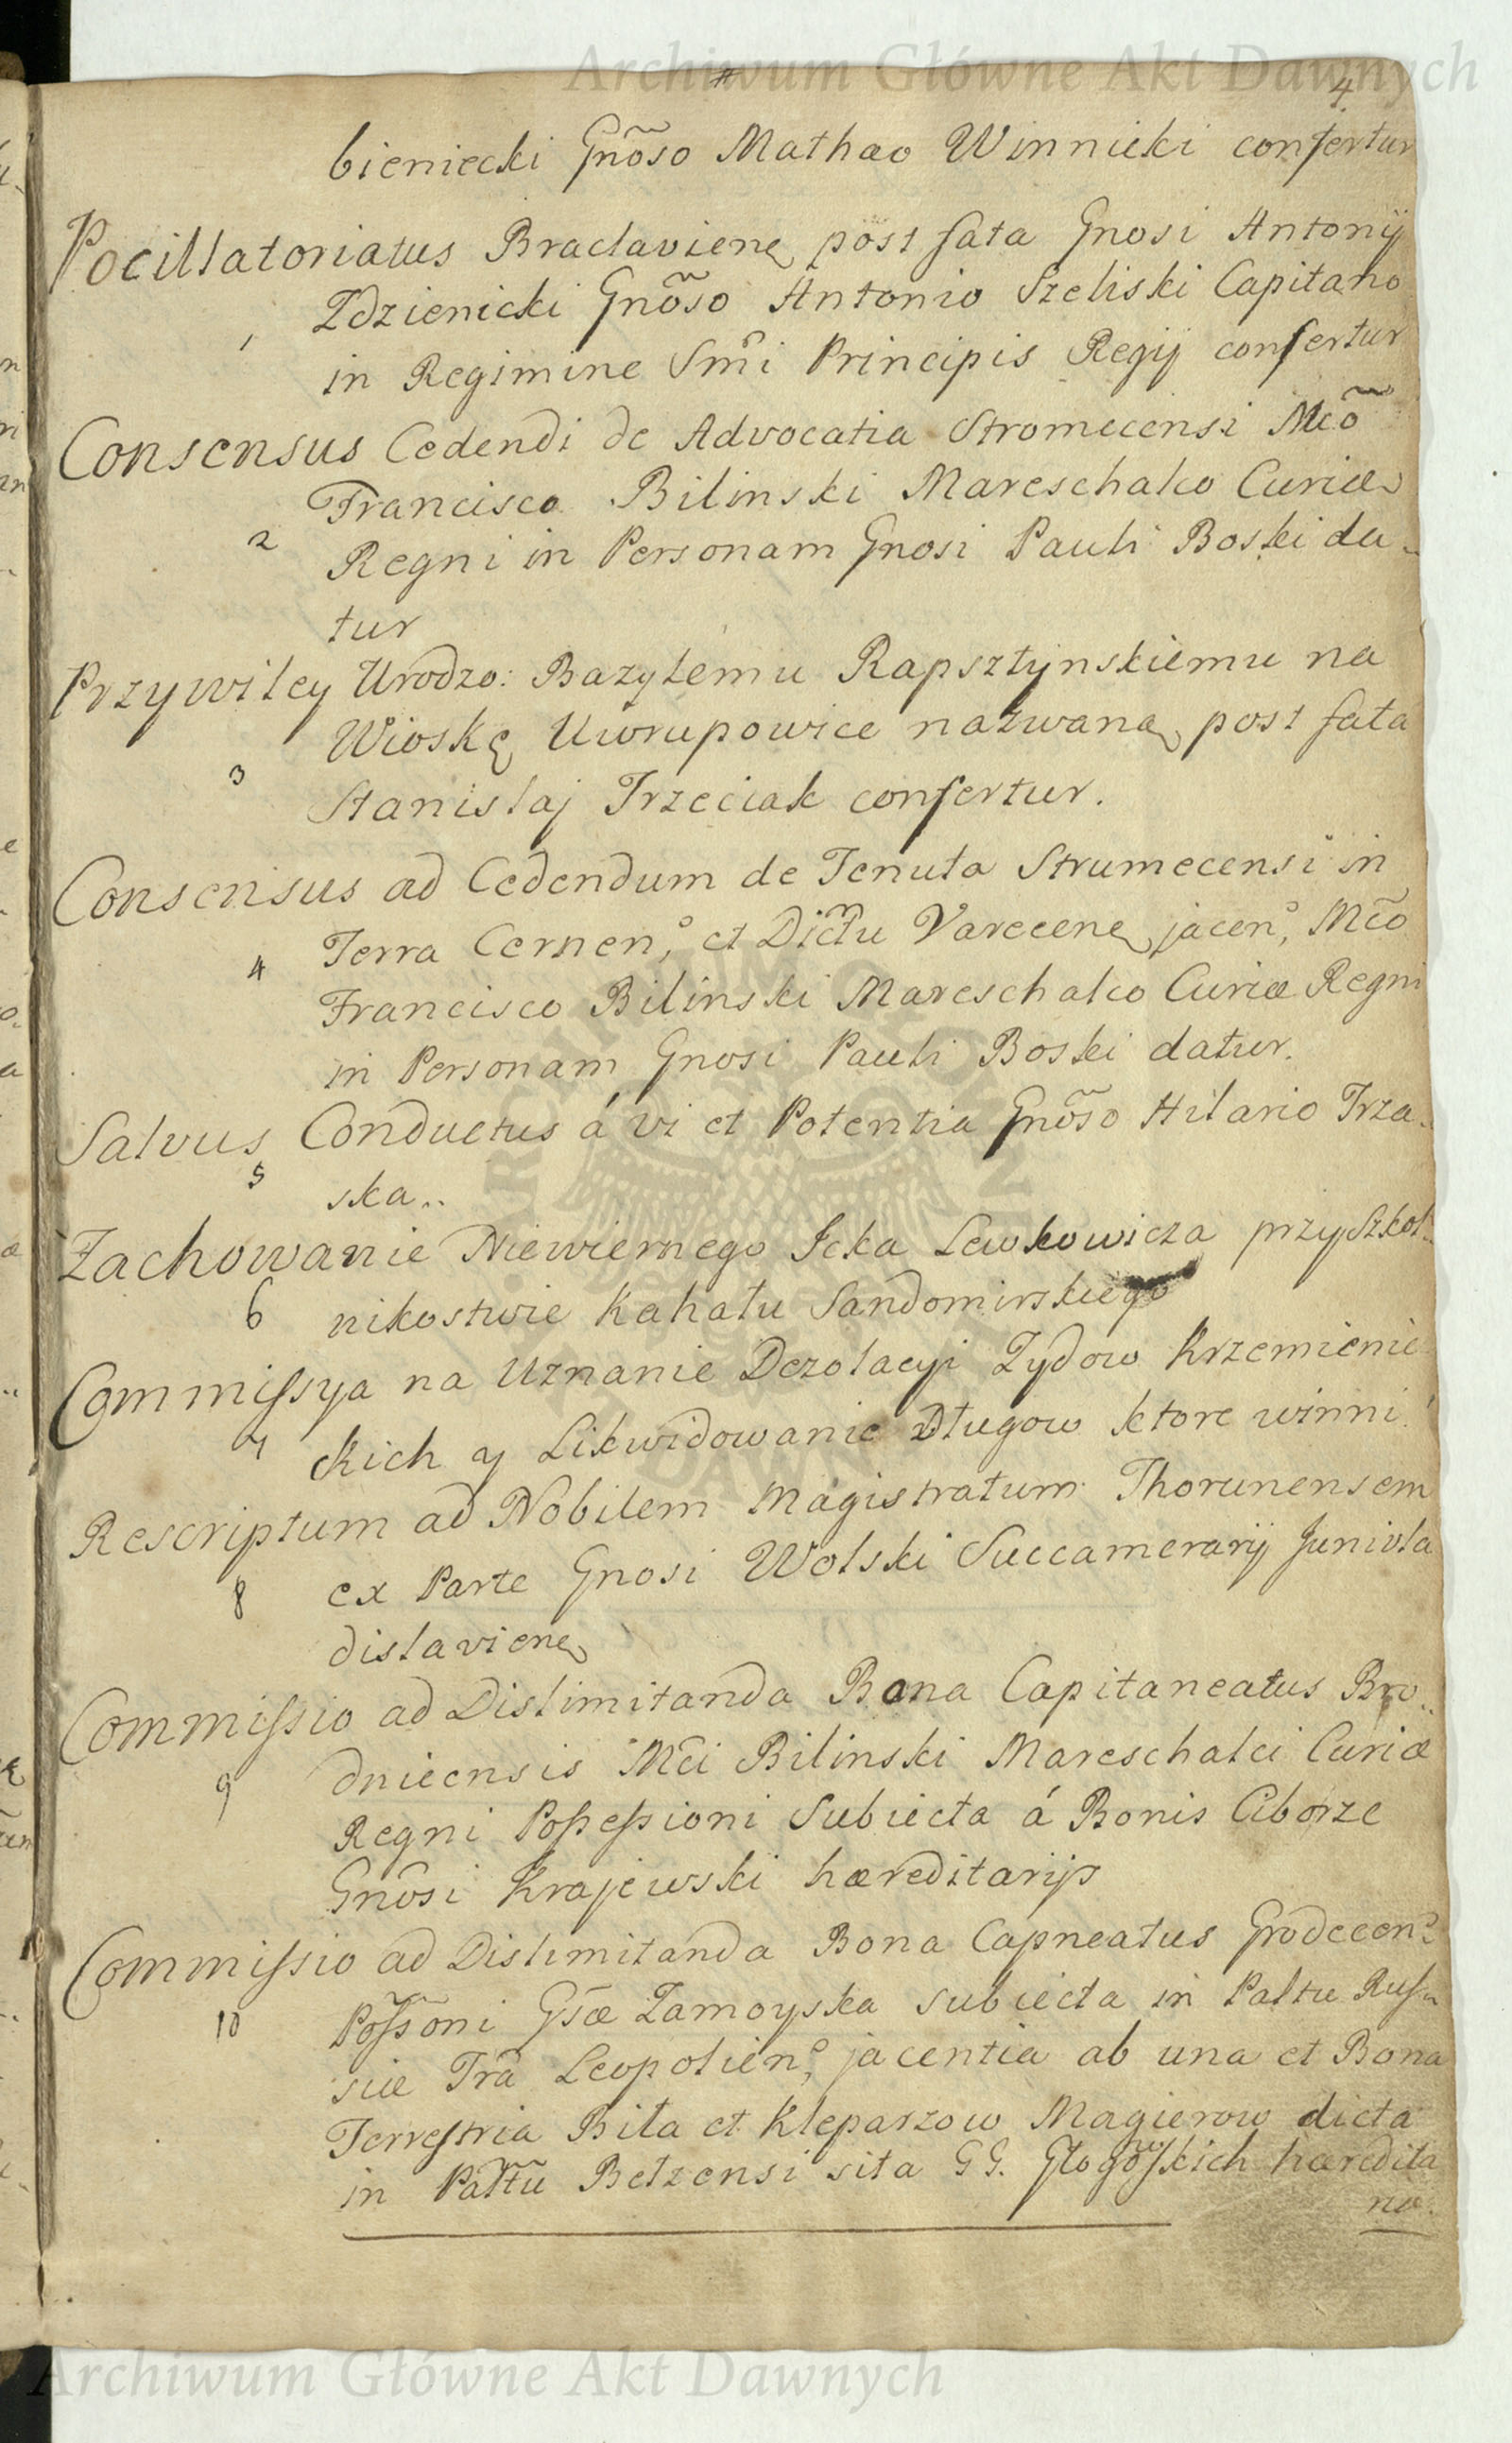 Archiwum Główne Akt Dawnych
4
bieniecki Gnõso Mathæo Winnicki confertur
Pocillatoriatus Braclavienę post fata Gnosi Antonij
1 Zdzienicki Gnõso Antonio Szeliski Capitano
in Regimine Smi Principis Regij confertur
Consensus Cedendi de Advocatia Stromecensi Mcõ
Francisco Bilinski Mareschalco Curiæ
2 Regni in Personam Gnosi Pauli Boski da-
tur
Przywiley Urodzo: Bazylemu Rapsztynskiemu na
Wioskę Uworupowice nazwaną post fata
3 Stanislaj Trzeciak confertur.
Consensus ad Cedendum de Tenuta Strumecensi in
4 Terra Cernen, et Dictu Varecenę jacen, Mco
Francisco Bilinski Mareschalco Curiæ Regni
in Personam Gnosi Pauli Boski datur.
Salvus Conductus á vi et Potentia Gnõso Hilario Trza-
5 ska..
Zachowanie Niewiernego Icka Lewkowicza przy Szkol-
6 nikostwie Kahału Sandomirskiego
Commissya na Uznanie Dezolacyi Zydow Krzemienie-
7 ckich y Likwidowanie Długow ktore winni.
Rescriptum ad Nobilem Magistratum Thorunensem
8 ex Parte Gnosi Wolski Succamerarij Junivla
dislavienę
Commissio ad Dislimitanda Bona Capitaneatus Bro-
9 dnicensis Mci Bilinski Mareschalci Curiæ
Regni Possessioni Subiecta á Bonis Ciborze
Gnosi Krajewski hæreditarijs
Commissio ad Dislimitanda Bona Capneatus Grodecen
10 Possoni Gsæ Zamoyska subiecta in Paltu Rus-
siæ Tra Leopolien, jacentia ab una et Bona
Terrestria Biła et Kleparzow Magierow dicta
in Paltu Betzensi sita GG. Głogowskich hæredita
ria.
Archiwum Główne Akt Dawnych